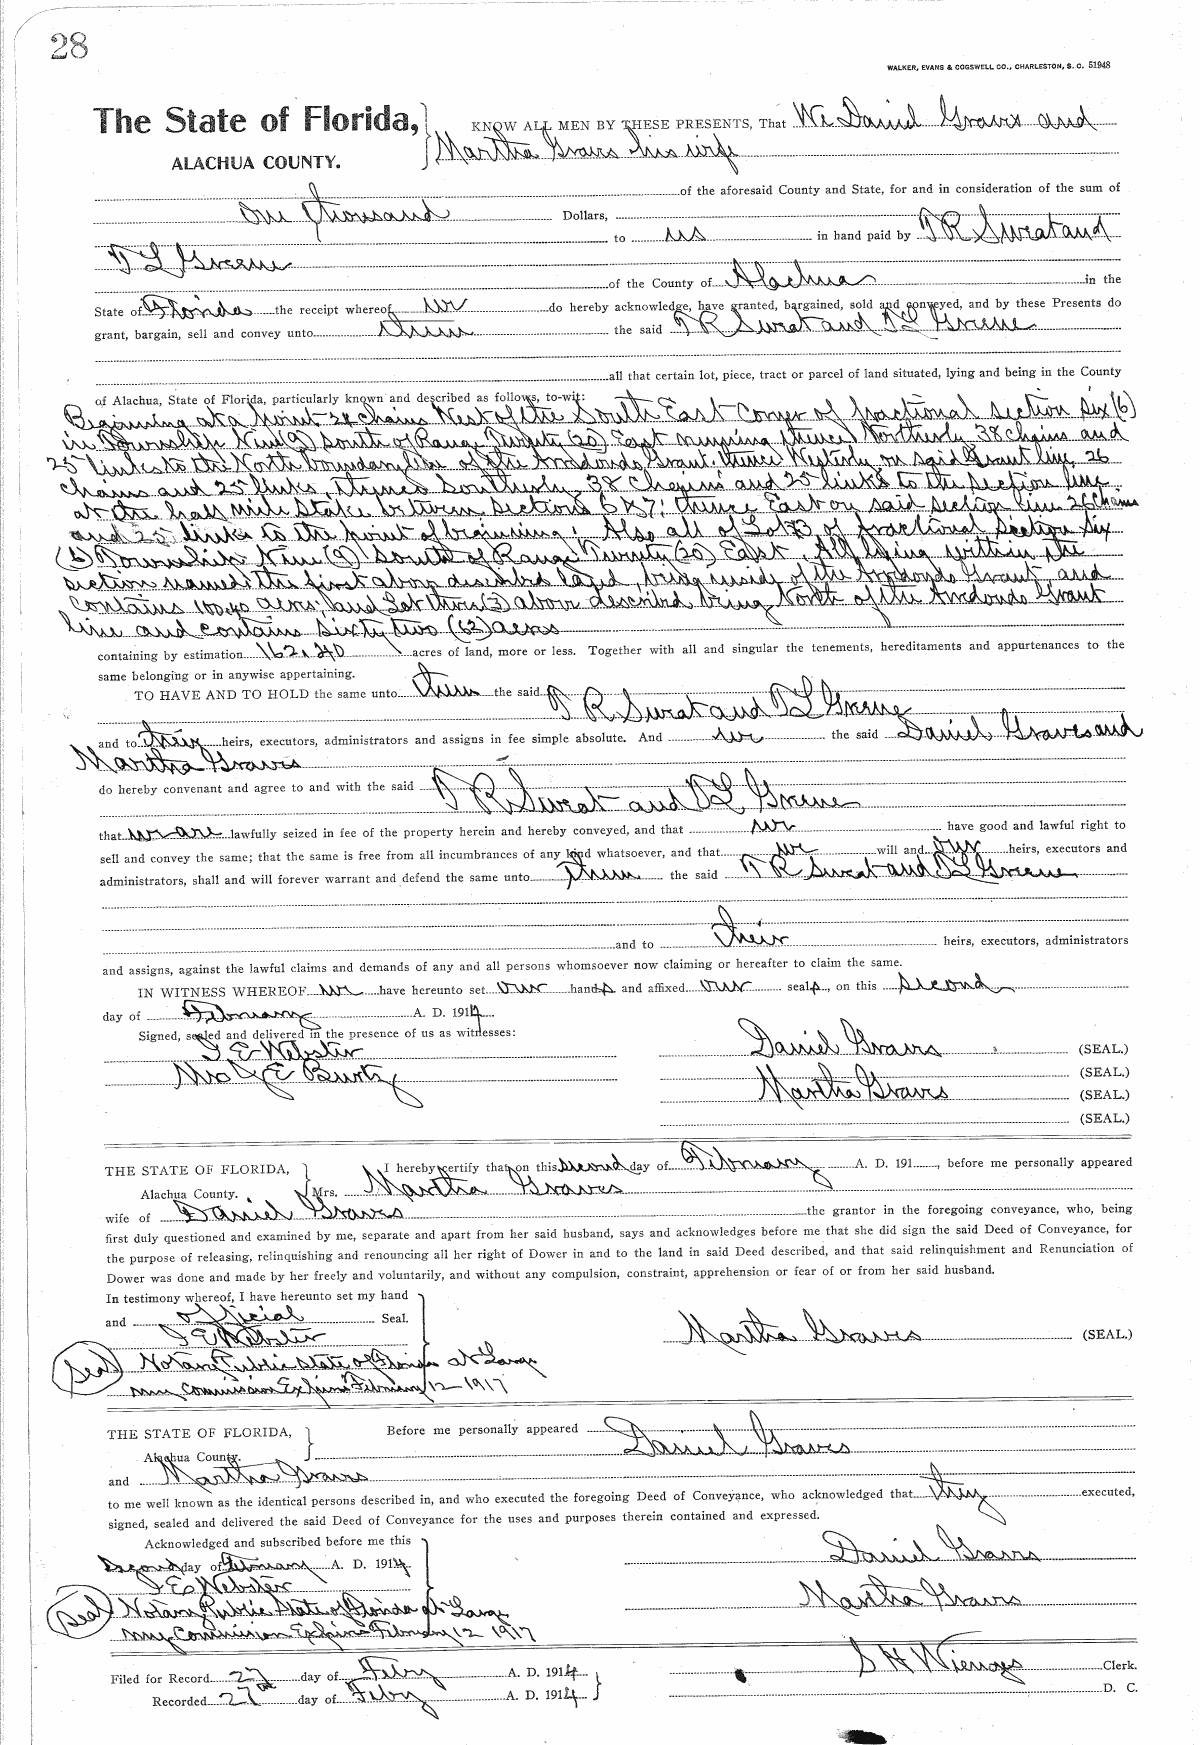 28
WALKER, EVANS & COGSWELL CO., CHARLESTON, S. C. 51948
The State of Florida, KNOW ALL MEN BY THESE PRESENTS, That We Daniel Graves and
ALACHUA COUNTY. Martha Graves his wife
of the aforesaid County and State, for and in consideration of the sum of
One thousand Dollars,
to us in hand paid by T R Sweat and
T L Greene
of the County of Alachua in the
State of Florida the receipt whereof we do hereby acknowledge, have granted, bargained, sold and conveyed, and by these Presents do
grant, bargain, sell and convey unto them the said T R Sweat and T L Greene
all that certain lot, piece, tract or parcel of land situated, lying and being in the County
of Alachua, State of Florida, particularly known and described as follows, to-wit:
Beginning at a point 24 chains West of the South East Corner of fractional section Six (6)
in Township Nine (9) South of Range Twenty (20) East running thence Northerly 38 Chains and
25 links to the North boundary line of the Arredondo Grant. thence Westerly on said Grant line 26
chains and 25 links, thence Southerly 38 Chains and 25 links to the section line
at the half mile Stake between sections 6 & 7; thence East on said section line 26 Chains
and 25 links to the point of beginning. Also all of Lot 3 of fractional Section Six
(6) Township Nine (9) South of Range Twenty (20) East. All lying within the
section named: the first above described land, being inside of the Arredondo Grant, and
contains 100.40 acres; and Lot three (3) above described being North of the Arredondo Grant
line and contains sixty two (62) acres
containing by estimation 162.40 acres of land, more or less. Together with all and singular the tenements, hereditaments and appurtenances to the
same belonging or in anywise appertaining.
TO HAVE AND TO HOLD the same unto them the said T R Sweat and T L Greene
and to their heirs, executors, administrators and assigns in fee simple absolute. And we the said Daniel Graves and
Martha Graves
do hereby convenant and agree to and with the said T R Sweat and T L Greene
that we are lawfully seized in fee of the property herein and hereby conveyed, and that we have good and lawful right to
sell and convey the same; that the same is free from all incumbrances of any kind whatsoever, and that we will and our heirs, executors and
administrators, shall and will forever warrant and defend the same unto them the said T R Sweat and T L Greene
and to their heirs, executors, administrators
and assigns, against the lawful claims and demands of any and all persons whomsoever now claiming or hereafter to claim the same.
IN WITNESS WHEREOF we have hereunto set our hands and affixed our seals, on this second
day of February A. D. 1914
Signed, sealed and delivered in the presence of us as witnesses:
I E Webster Daniel Graves (SEAL.)
(SEAL.)
Mrs J E Burtz Martha Graves (SEAL.)
(SEAL.)
THE STATE OF FLORIDA, I hereby certify that on this second day of February A. D. 191 , before me personally appeared
Alachua County. Mrs. Martha Graves
wife of Daniel Graves the grantor in the foregoing conveyance, who, being
first duly questioned and examined by me, separate and apart from her said husband, says and acknowledges before me that she did sign the said Deed of Conveyance, for
the purpose of releasing, relinquishing and renouncing all her right of Dower in and to the land in said Deed described, and that said relinquishment and Renunciation of
Dower was done and made by her freely and voluntarily, and without any compulsion, constraint, apprehension or fear of or from her said husband.
In testimony whereof, I have hereunto set my hand
and official Seal.
I E Webster Martha Graves (SEAL.)
Seal Notary Public State of Florida at Large
my Commission Expires February 12 1917
THE STATE OF FLORIDA, Before me personally appeared Daniel Graves
Alachua County.
and Martha Graves
to me well known as the identical persons described in, and who executed the foregoing Deed of Conveyance, who acknowledged that they executed,
signed, sealed and delivered the said Deed of Conveyance for the uses and purposes therein contained and expressed.
Acknowledged and subscribed before me this
Second day of February A. D. 1914 Daniel Graves
I E Webster
Seal Notary Public State of Florida at Large Martha Graves
my Commission Expires February 12 1917
Filed for Record 27 day of Feby A. D. 1914 S H Wienges Clerk.
Recorded 27th day of Feby A. D. 1914 D. C.